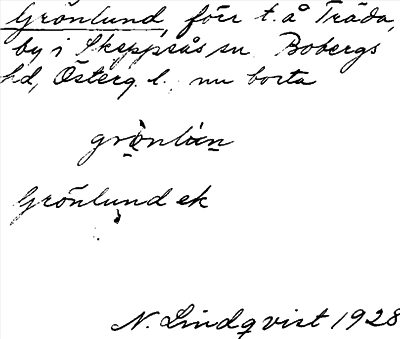 Grönlund, förr t. å Träda,
by i Skeppsås sn Bobergs
hd, Österg. l. nu borta
grönlun
Grönlund ek
N. Lindqvist 1928